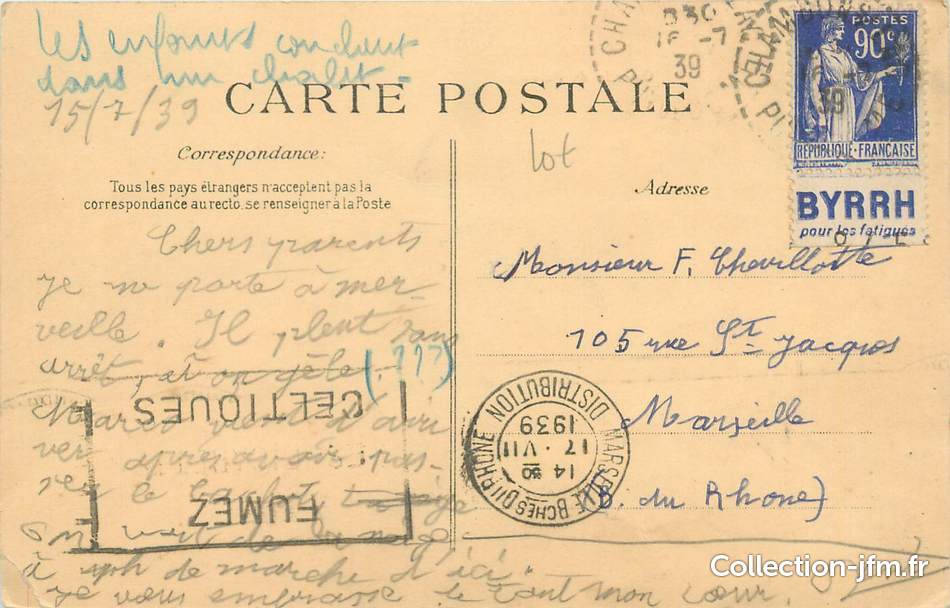 Les enfants couchent
dans un chalet -
15/7/39
CARTE POSTALE
Correspondance:
Tous les pays étrangers n'acceptent pas la
correspondance au recto, se renseigner à la Poste
Chers parents
je me porte à mer-
veille. Il pleut sans
arrêt, et on gèle (???)
Marcel vient d'arri
ver après avoir pas-
sé le
On voit de la neige
à 4h de marche d'ici.
Je vous embrasse de tout mon cœur.
CELTIQUES
FUMEZ
lot
Adresse
Monsieur F. Chevillotte
105 rue St Jacques
Marseille
(B. du Rhone)
CHA
16 -7
39
POSTES
90c
RÉPUBLIQUE·FRANÇAISE
BYRRH
pour les fatigués
MARSEILLE BCHES DU RHONE
14 30
17 · VII
1939
DISTRIBUTION
Collection-jfm.fr